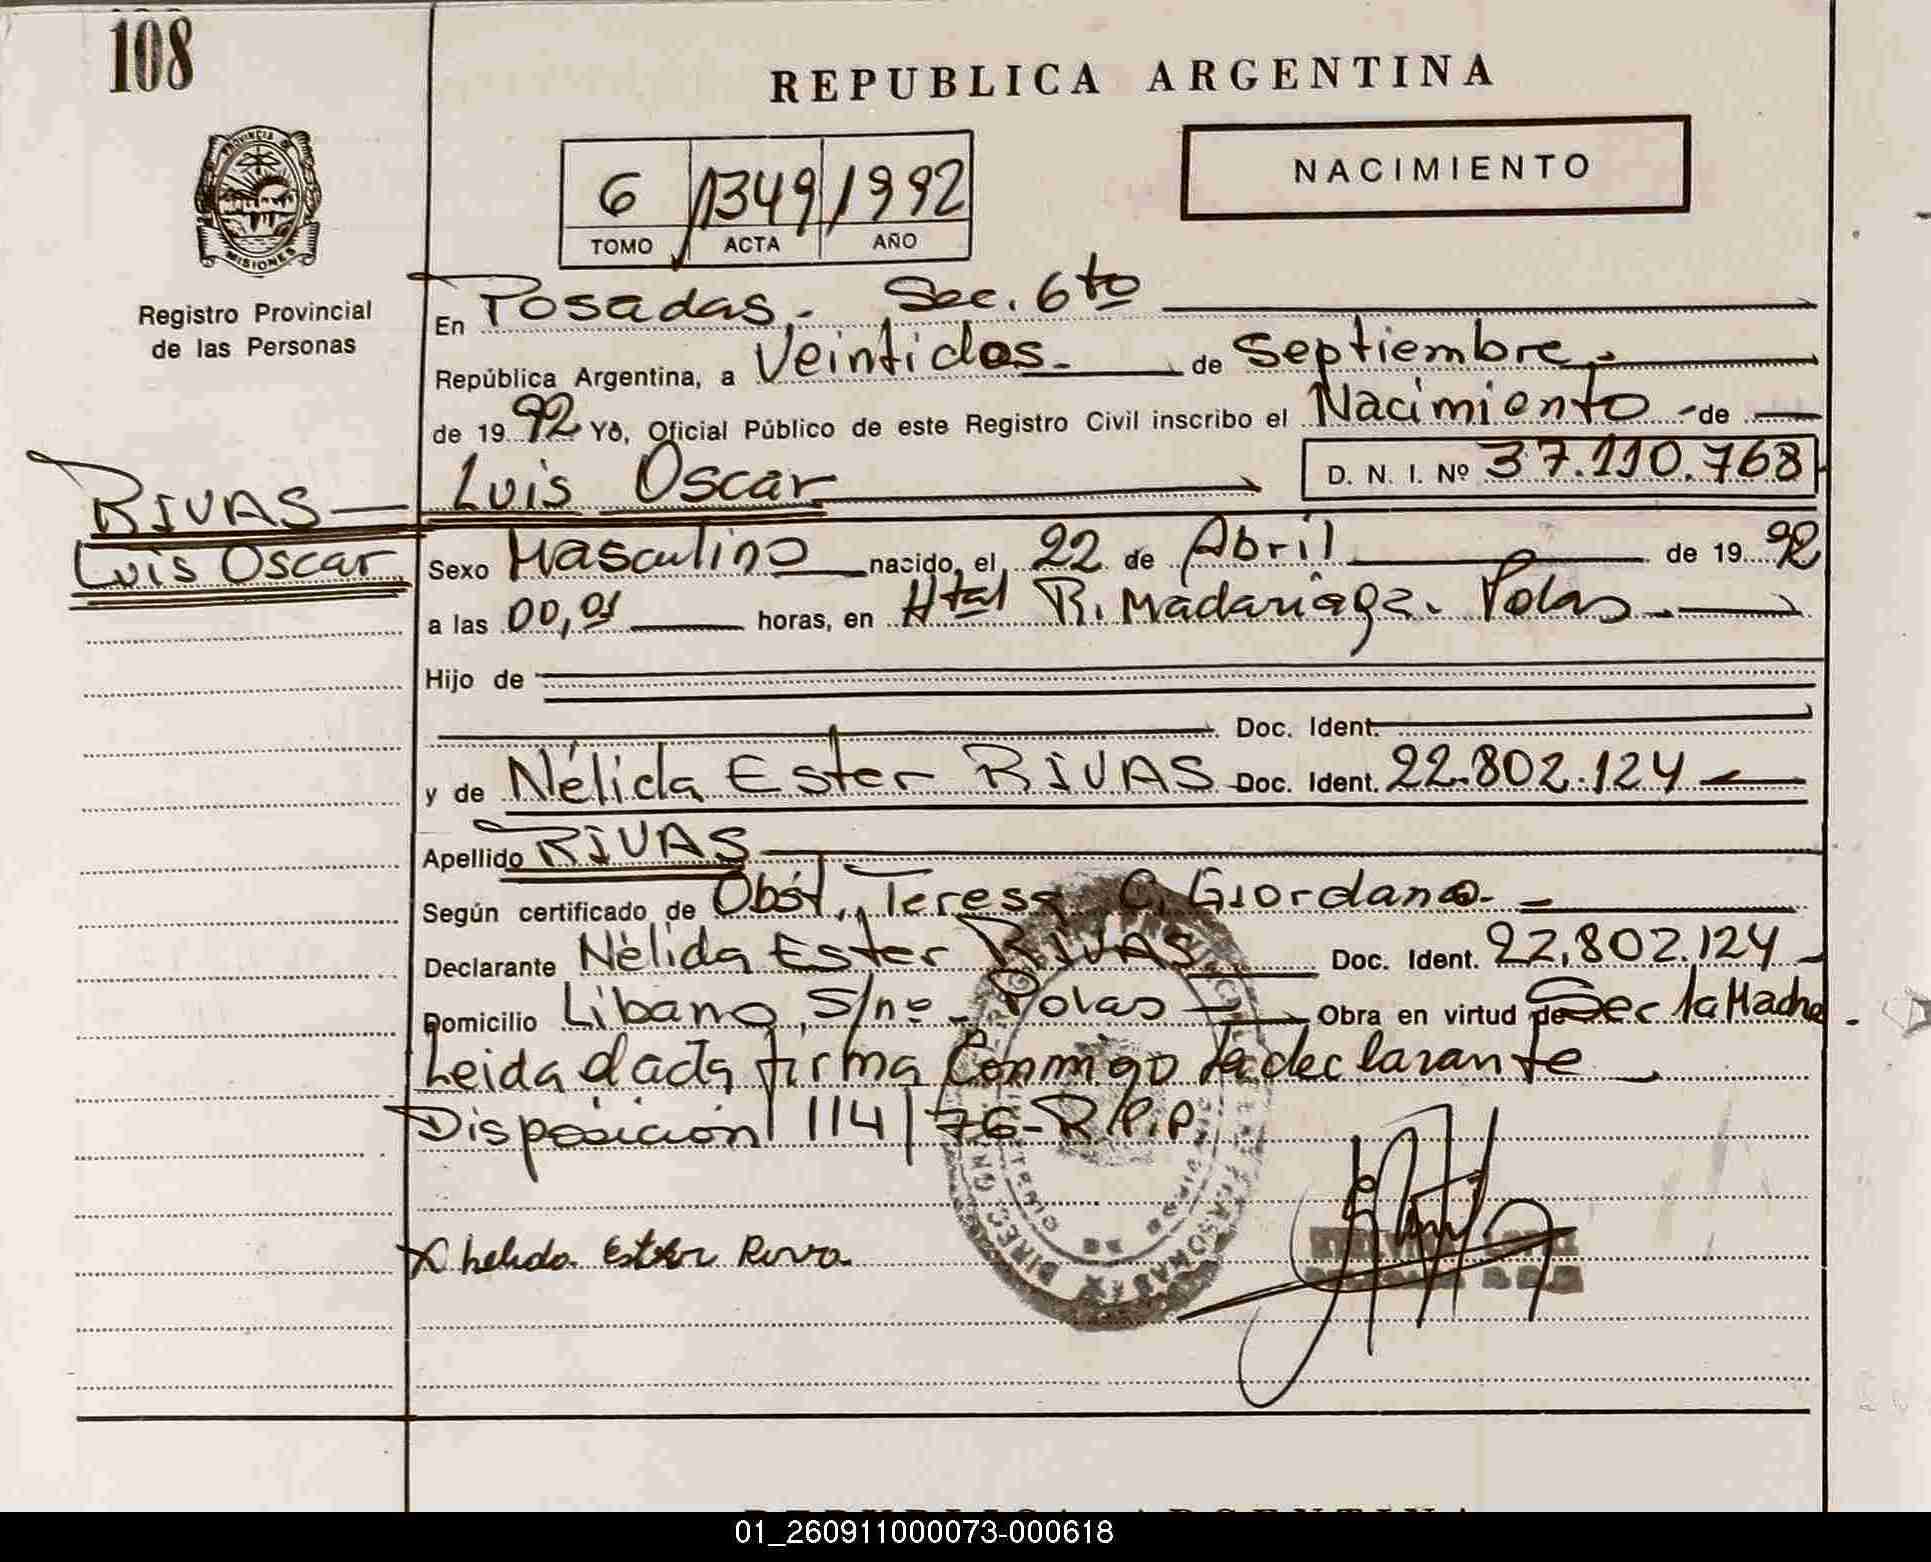 108
REPUBLICA ARGENTINA
PROVINCIA DE
MISIONES
6 1349 1992
TOMO ACTA AÑO
NACIMIENTO
Registro Provincial
de las Personas
En Posadas.- Sec. 6to
República Argentina, a Veintidos.- de Septiembre.-
de 1992 Yo, Oficial Público de este Registro Civil inscribo el Nacimiento - de
Luis Oscar D. N. I. Nº 37.110.768
RIVAS
Luis Oscar
Sexo Masculino nacido, el 22 de Abril de 1992
a las 00,01 horas, en Htal R. Madariaga. Pdas.
Hijo de
Doc. Ident.
y de Nélida Ester RIVAS Doc. Ident. 22.802.124
Apellido RIVAS
Según certificado de Obst. Teresa C. Giordano.-
Declarante Nélida Ester RIVAS Doc. Ident. 22.802.124
Domicilio Libano S/nº - Pdas Obra en virtud de Ser la Madre
Leida el acta firma Conmigo la declarante
Disposición 114/76-R.P.P.
Nelida Ester Riva.
REPUBLICA ARGENTINA
01_260911000073-000618